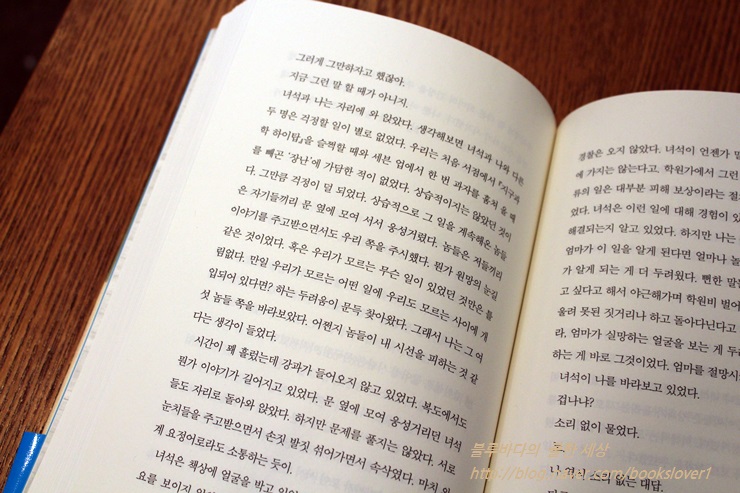 그러게 그만하자고 했잖아.
지금 그런 말 할 때가 아니지.
녀석과 나는 자리에 와 앉았다. 생각해보면 녀석과 나와 다른
두 명은 걱정할 일이 별로 없었다. 우리는 처음 서점에서 『지구과
학 하이탑』을 슬쩍할 때와 세븐 업에서 한 번 과자를 훔쳐 올 때
를 빼곤 '장난'에 가담한 적이 없었다. 상습적이지는 않았던 것이
다. 그만큼 걱정이 덜 되었다. 상습적으로 그 일을 계속해온 놈들
은 자기들끼리 문 옆에 모여 서서 웅성거렸다. 놈들은 저들끼리
이야기를 주고받으면서도 우리 쪽을 주시했다. 뭔가 원망의 눈길
같은 것이었다. 혹은 우리가 모르는 무슨 일이 있었던 것만은 틀
림없다. 만일 우리가 모르는 어떤 일에 우리도 모르는 사이에 개
입되어 있다면? 하는 두려움이 문득 찾아왔다. 그래서 나는 그 여
섯 놈들 쪽을 바라보았다. 어쩐지 놈들이 내 시선을 피하는 것 같
다는 생각이 들었다.
시간이 꽤 흘렀는데 강과가 들어오지 않고 있었다. 복도에서도
뭔가 이야기가 길어지고 있었다. 문 옆에 모여 웅성거리던 녀석
들도 자리로 돌아와 앉았다. 하지만 문제를 풀지는 않았다. 서로
눈치들을 주고받으면서 손짓 발짓 섞어가면서 속삭였다. 마치 외
계 요정어로라도 소통하는 듯이.
녀석은 책상에 얼굴을 박고 있
요를 보이지
경찰은 오지 않았다. 녀석이 언젠가 말
에 가지는 않는다고. 학원가에서 그런
류의 일은 대부분 피해 보상이라는 절
었다. 녀석은 이런 일에 대해 경험이 있
해결되는지 알고 있었다. 하지만 나는
엄마가 이 일을 알게 된다면 얼마나 놀
가 알게 되는 게 더 두려웠다. 뻔한 말
고 싶다고 해서 야근해가며 학원비 벌어
울려 못된 짓거리나 하고 돌아다닌다고
라. 엄마가 실망하는 얼굴을 보는 게 두려
하는 게 바로 그것이었다. 엄마를 절망시
녀석이 나를 바라보고 있었다.
겁나냐?
소리 없이 물었다.
없는 대답.
http://blog.naver.com/bookslover1